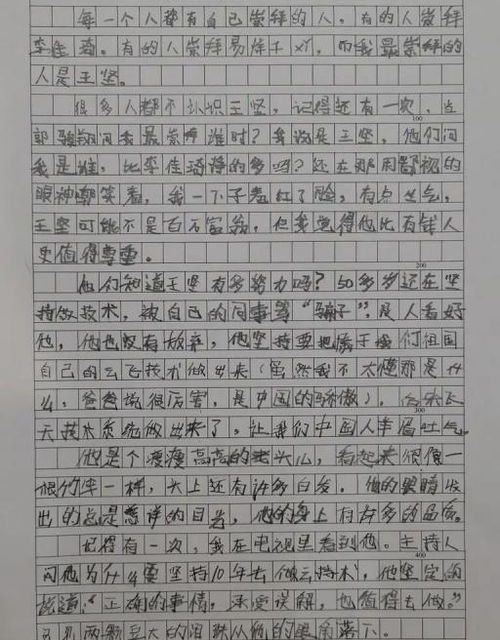 每一个人都有自己崇拜的人,有的人崇拜
李佳琦。有的人崇拜易烊千玺,而我最崇拜的
人是王坚。
很多人都不认识王坚,记得还有一次,当
问我最崇拜谁时?我说是王坚,他们问
我是谁,比李佳琦挣的多吗?还在那用鄙视的
眼神嘲笑着,我一下子羞红了脸,有点生气,
王坚可能不是百万富翁,但我觉得他比有钱人
更值得尊重。
100
他们知道王坚有多努力吗?50多岁还在坚
持做技术,被自己的同事骂“骗子”,没人看好
他,他也没有放弃,他坚持要把属于我们祖国
自己的云飞技术做出来(虽然我不太懂那是什
么,爸爸说很厉害,是中国的骄傲),
天技术系统做出来了。让我们中国人扬眉吐气。
200
300
他是个瘦瘦高高的老头儿,看起来很像一
根竹竿一样,头上还有许多白发,他的眼睛发
出的总是慈祥的目光,他的身上有许多的品质。
记得有一次,我在电视里看到他。主持人
问他为什么要坚持10年去做云技术,他坚定的
说道:“正确的事情,承受误解,也值得去做。”
400
两颗豆大的泪珠从他的眼角落下。